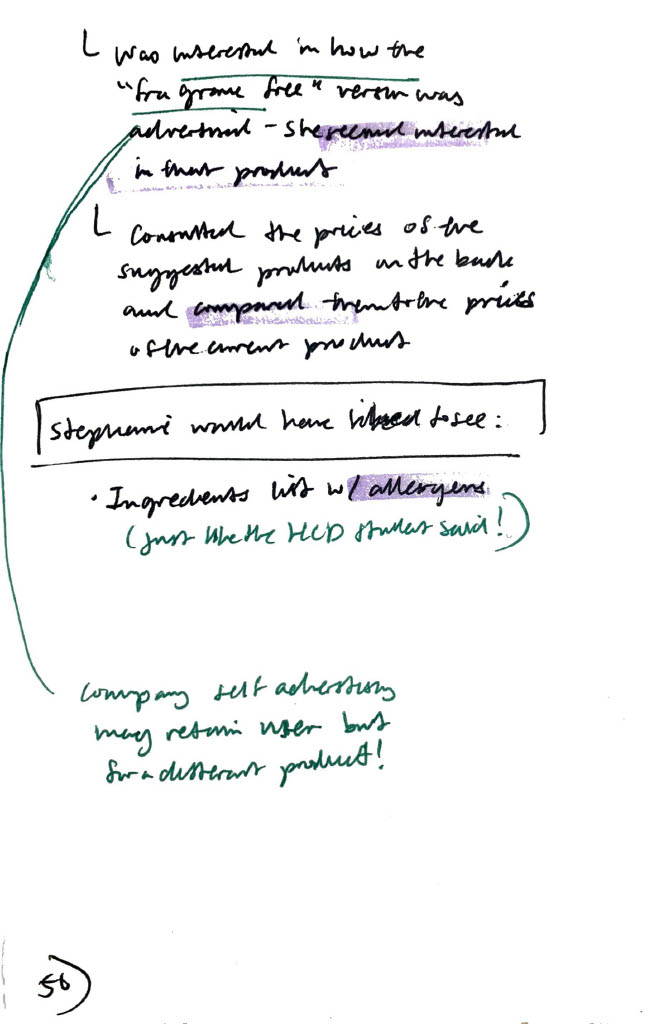 Was interested in how the
"fragrance free" version was
advertised - She seemed interested
in that product
Consulted the prices of the
suggested products on the back
and compared them to the prices
of the current product
Stephanie would have liked to see:
• Ingredients list w/ allergens
(just like the HCD student said!)
company self advertising
may retain user but
for a different product!
56